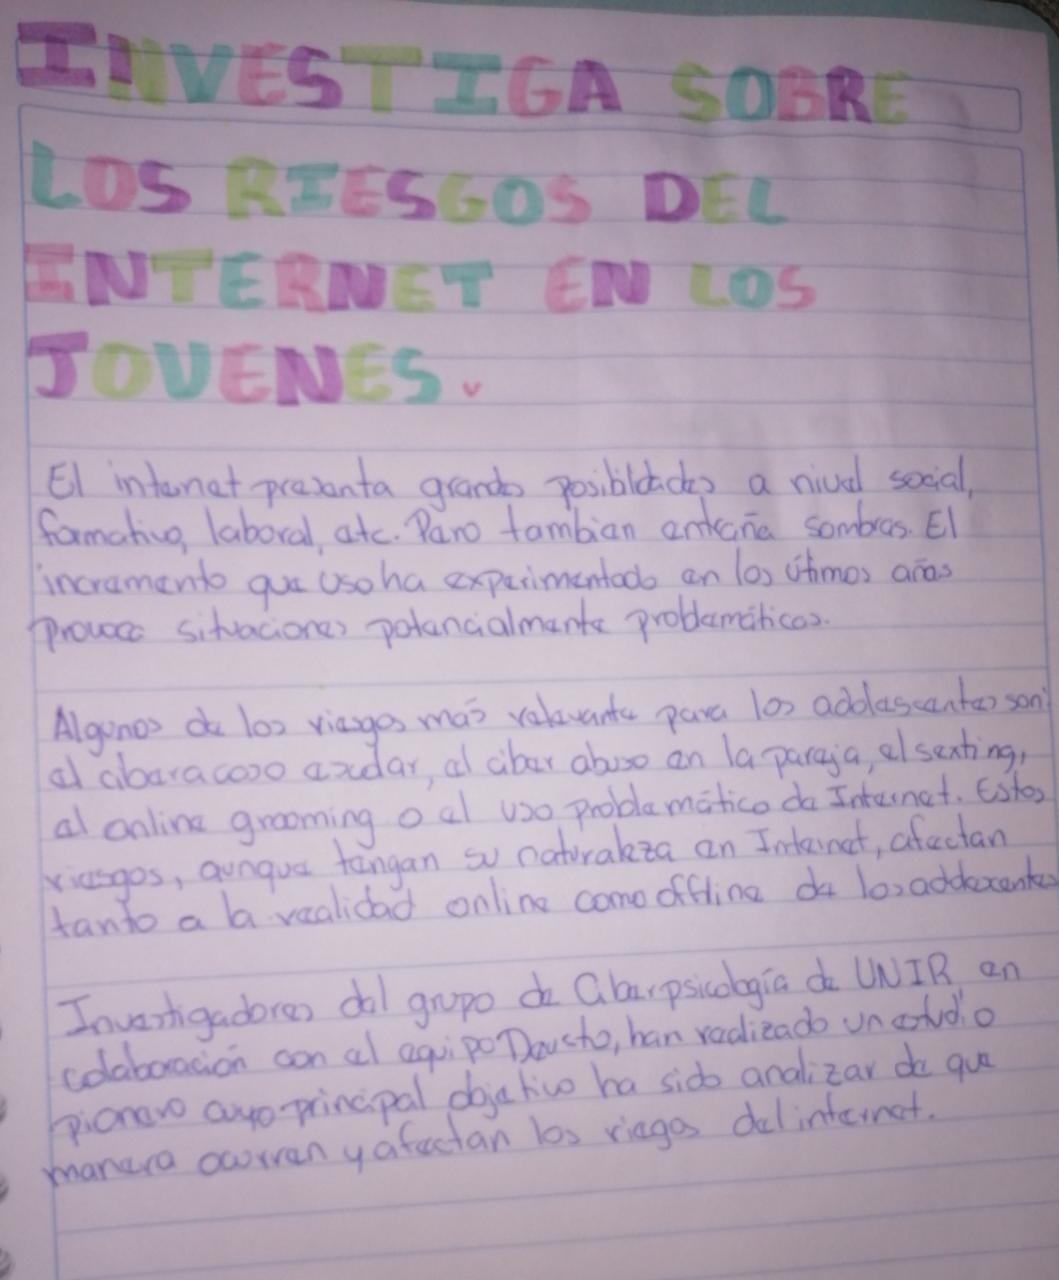 INVESTIGA SOBRE
LOS RIESGOS DEL
INTERNET EN LOS
JOVENES.
El internet presenta grandes posibilidades a nivel social,
formativo, laboral, etc. Pero tambien entraña sombras. El
incremento que uso ha experimentado en los útimos años
provoca situaciones potencialmente problemáticas.
Algunos de los riesgos más relevante para los adolescentes son:
el ciberacoso escolar, el ciber abuso en la pareja, el sexting,
el online grooming o el uso problemático de Internet. Estos
riesgos, aunque tengan su naturaleza en Internet, afectan
tanto a la realidad online como offline de los adolescentes
Investigadores del grupo de Ciberpsicología de UNIR, en
colaboración con el equipo Deusto, han realizado un estudio
pionero cuyo principal objetivo ha sido analizar de que
manera ocurren y afectan los riegos del internet.